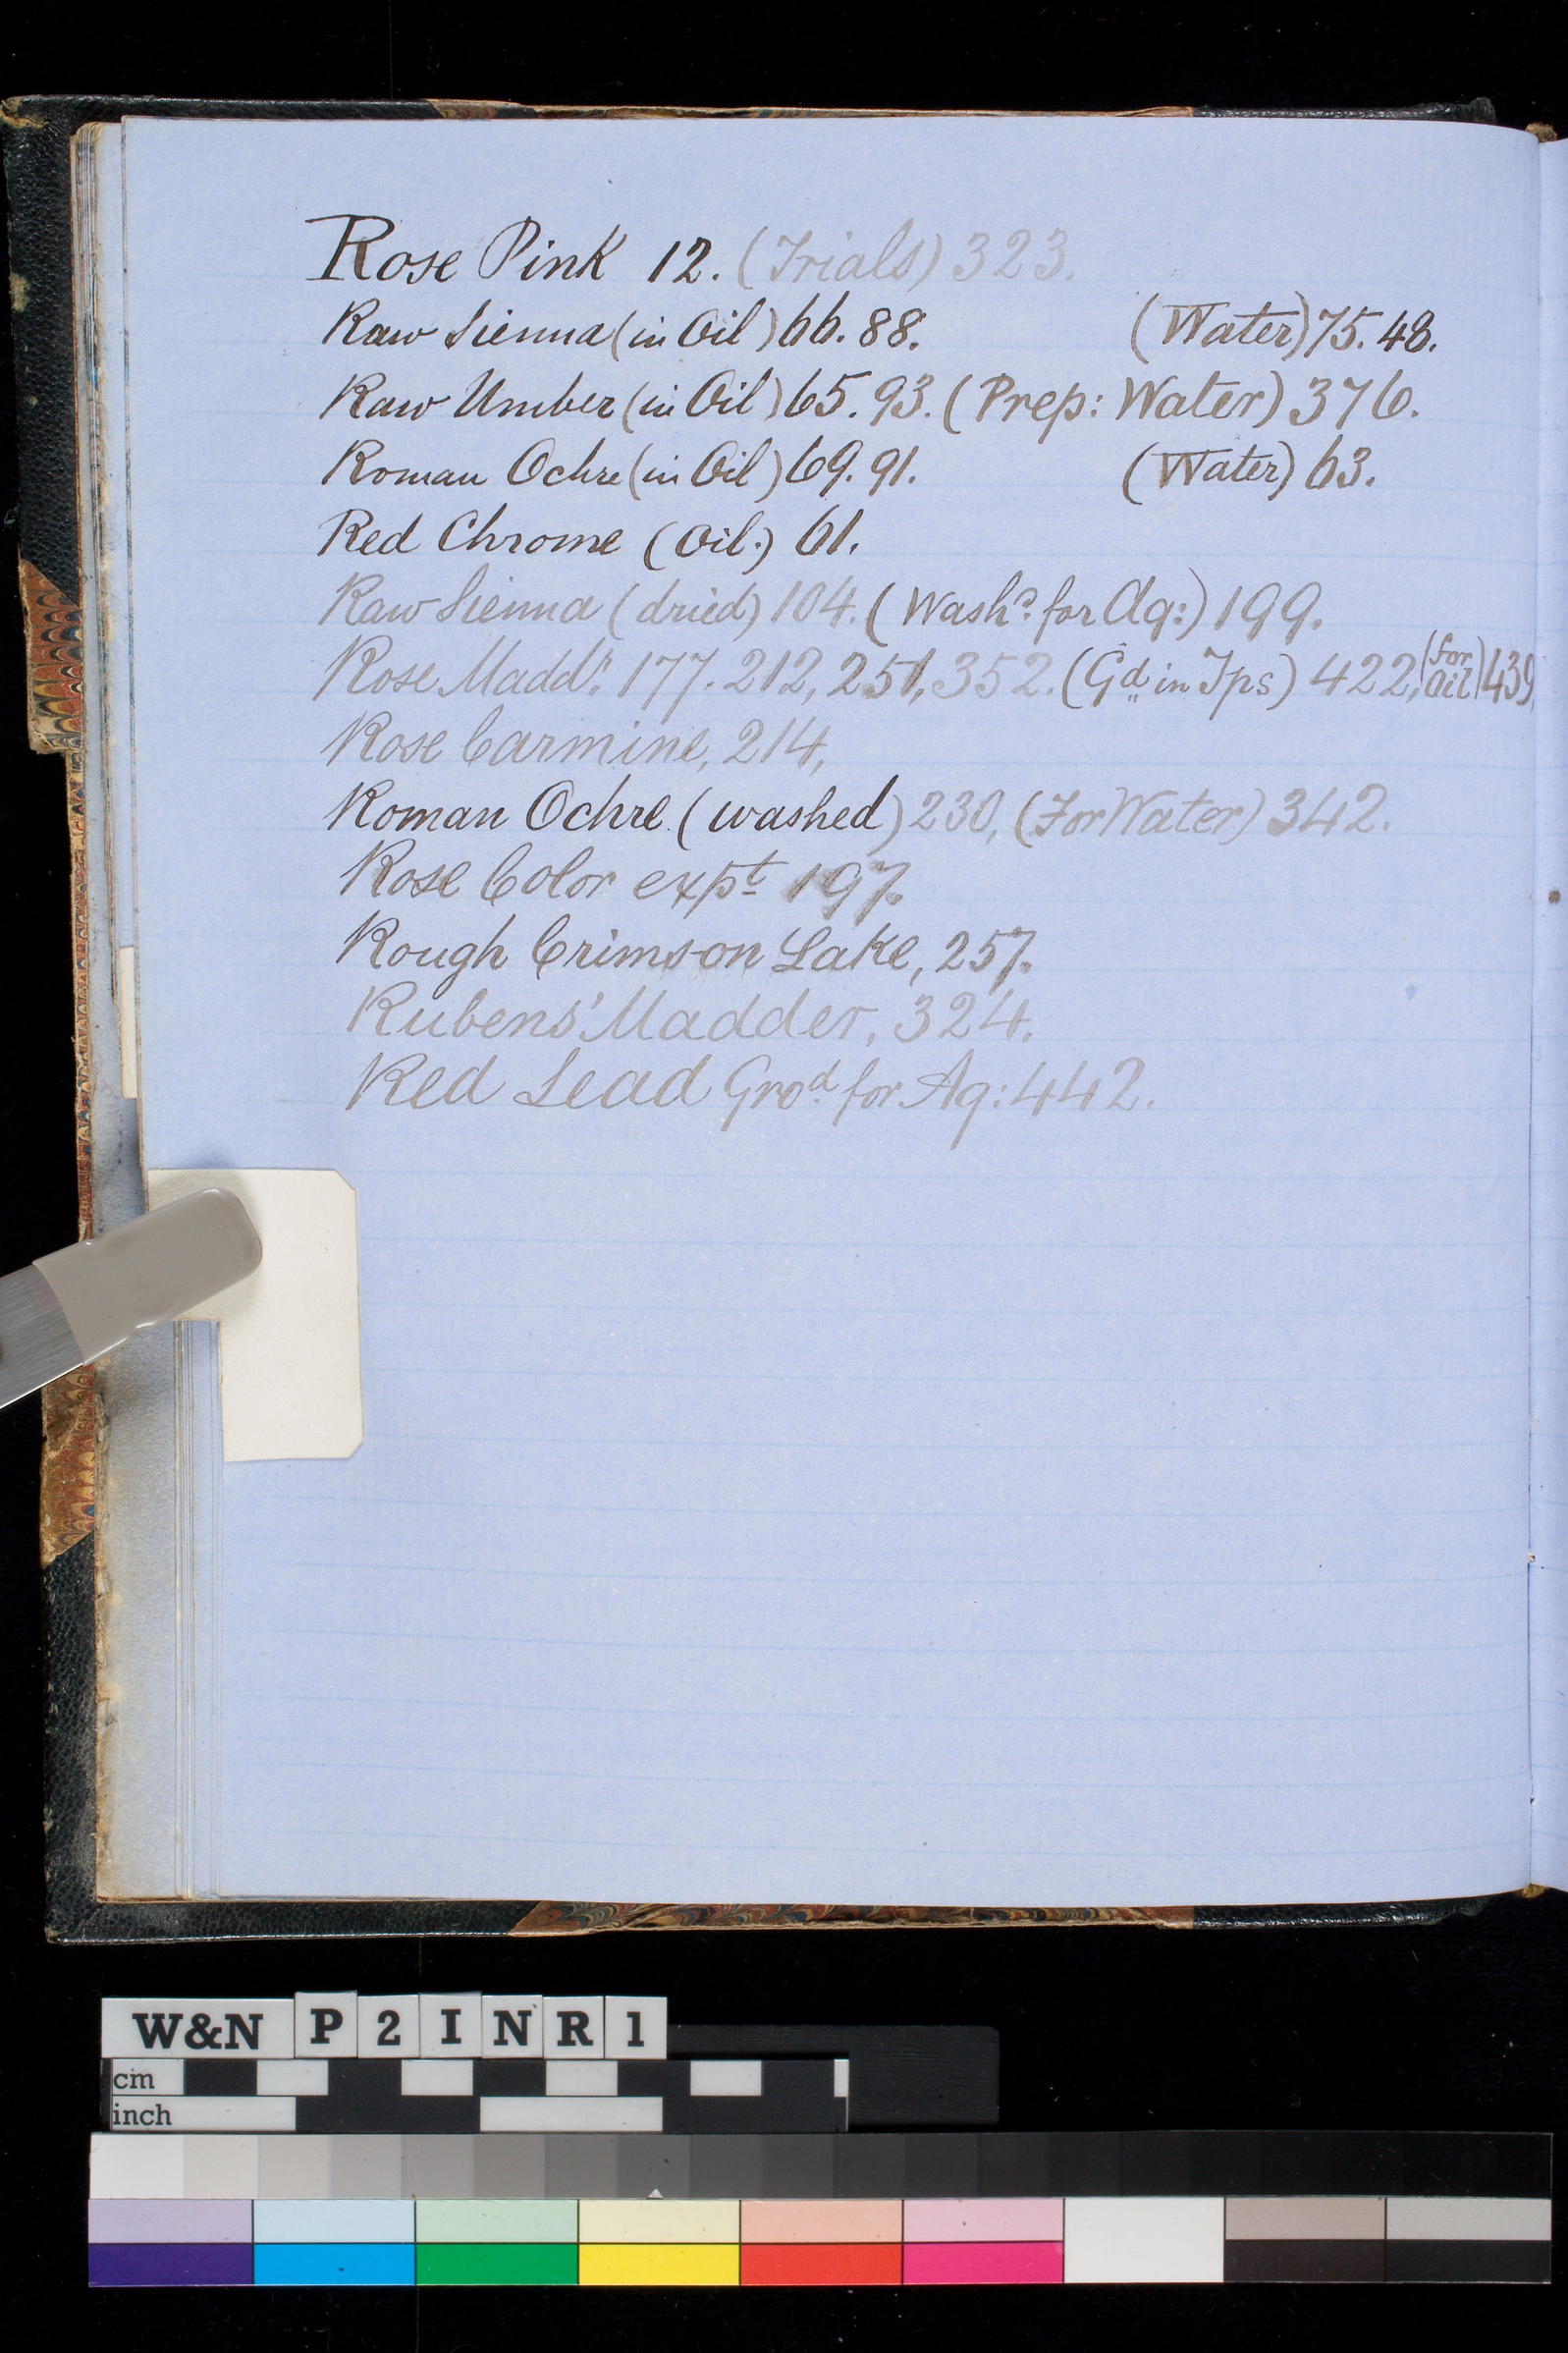 Rose Pink 12. (Trials) 323.
Raw Sienna (in Oil) 66. 88. (Water) 75. 48.
Raw Umber (in Oil) 65. 93. (Prep: Water) 376.
Roman Ochre (in Oil) 69. 91. (Water) 63.
Red Chrome (Oil.) 61.
Raw Sienna (dried) 104. (Washd. for Aq:) 199.
Rose Maddr. 177. 212, 251, 352. (Gd in Ips) 422, (for Oil) 439
Rose Carmine, 214,
Roman Ochre (washed) 230, (For Water) 342.
Rose Color expt 197.
Rough Crimson Lake, 257.
Rubens' Madder, 324.
Red Lead Grod. for Aq: 442.
W&N P 2 I N R 1
cm
inch